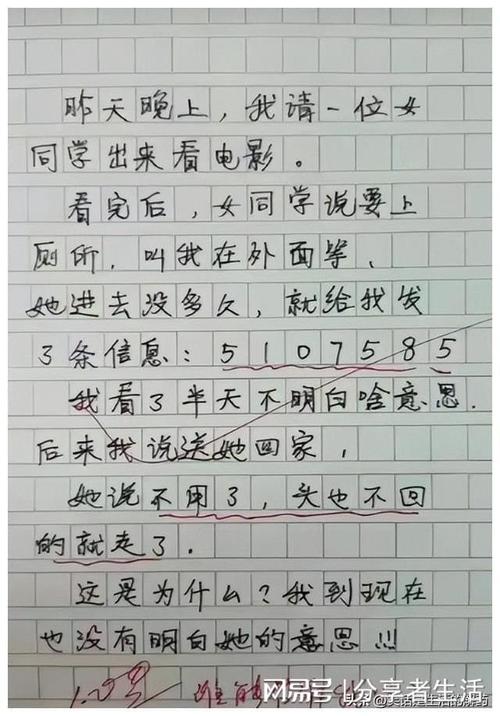 昨天晚上，我请一位女
同学出来看电影。
看完后，女同学说要上
厕所，叫我在外面等，
她进去没多久，就给我发
了条信息：5107585
我看了半天不明白啥意思.
后来我说送她回家，
她说不用了，头也不回
的就走了.
这是为什么？我到现在
也没有明白她的意思!!!
谁能
网易号 | 分享者生活
头条 @笑话是生活的解药